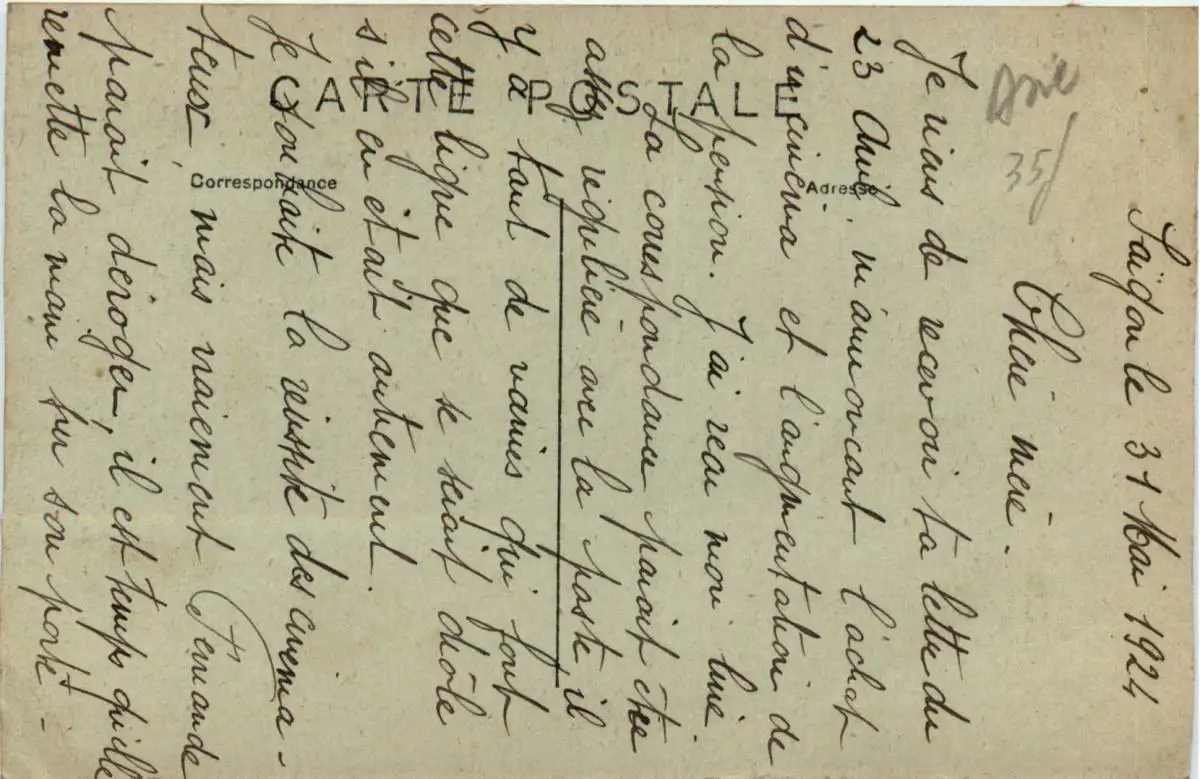 CARTE POSTALE
Correspondance
Adresse
Asie
35/
Saigon le 31 Mai 1924
Chère mère.
Je viens de recevoir ta lettre du
23 Avril, m'annoncant l'achat
d'un cinéma et l'augmentation de
la pension. J'ai reçu mon livre
La correspondance parait être
assez régulière avec la poste, il
y a tant de navires qui font
cette ligne que se serait drôle
s'il en était autrement.
Je souhaite la réussite des cinéma-
teux, mais vraiment Fernande
parait déroger, il est temps qu'elle
remette la main sur son porte-